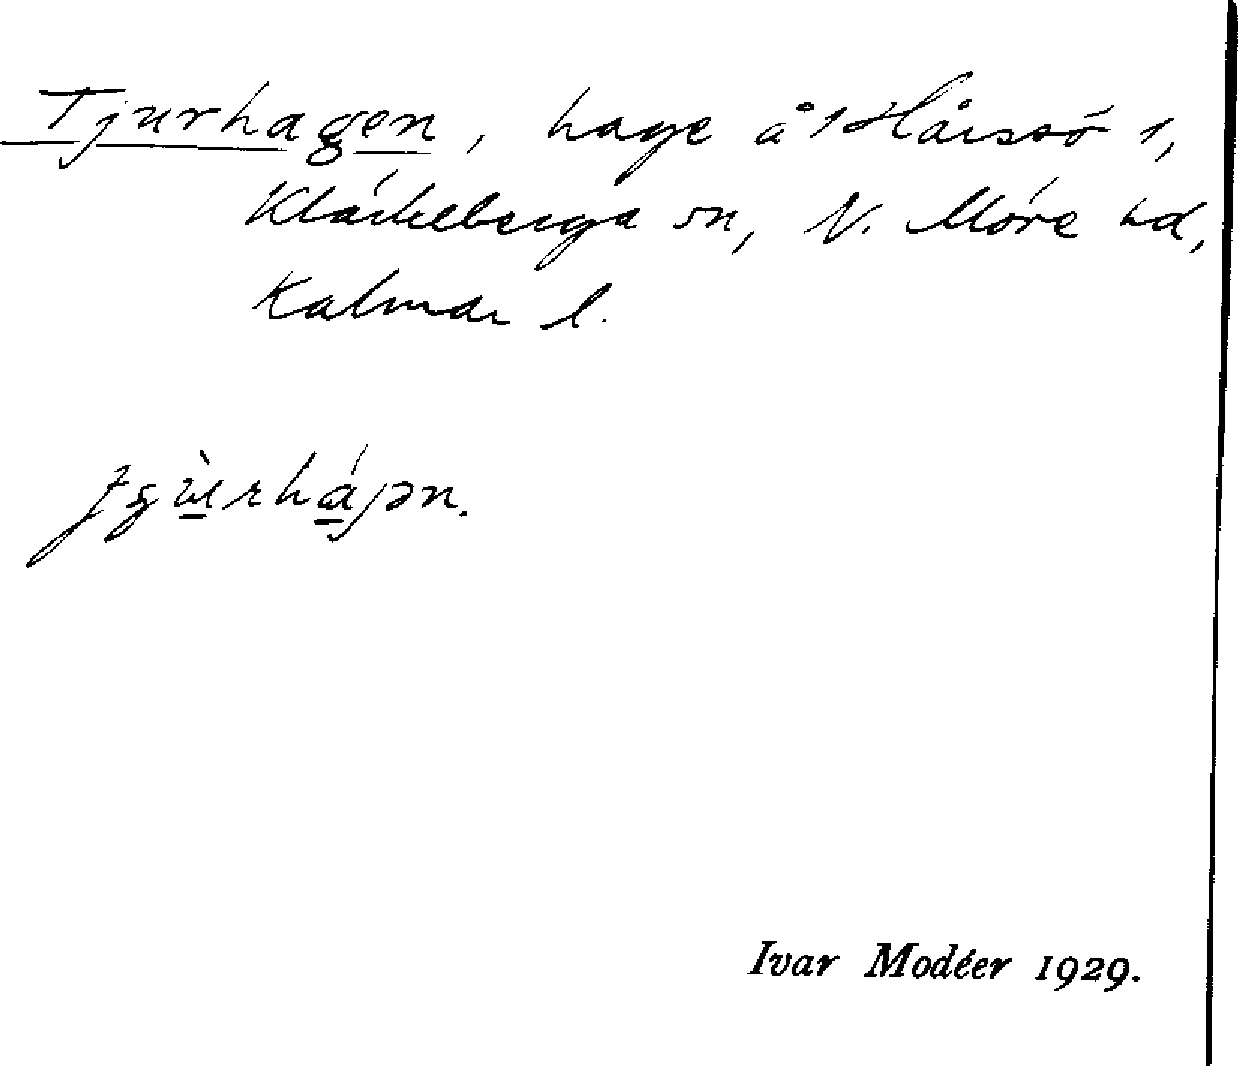 Tjurhagen, hage å Hårsö 1,
Kläckeberga sn, N. Möre hd,
Kalmar l.
Ivar Modéer 1929.